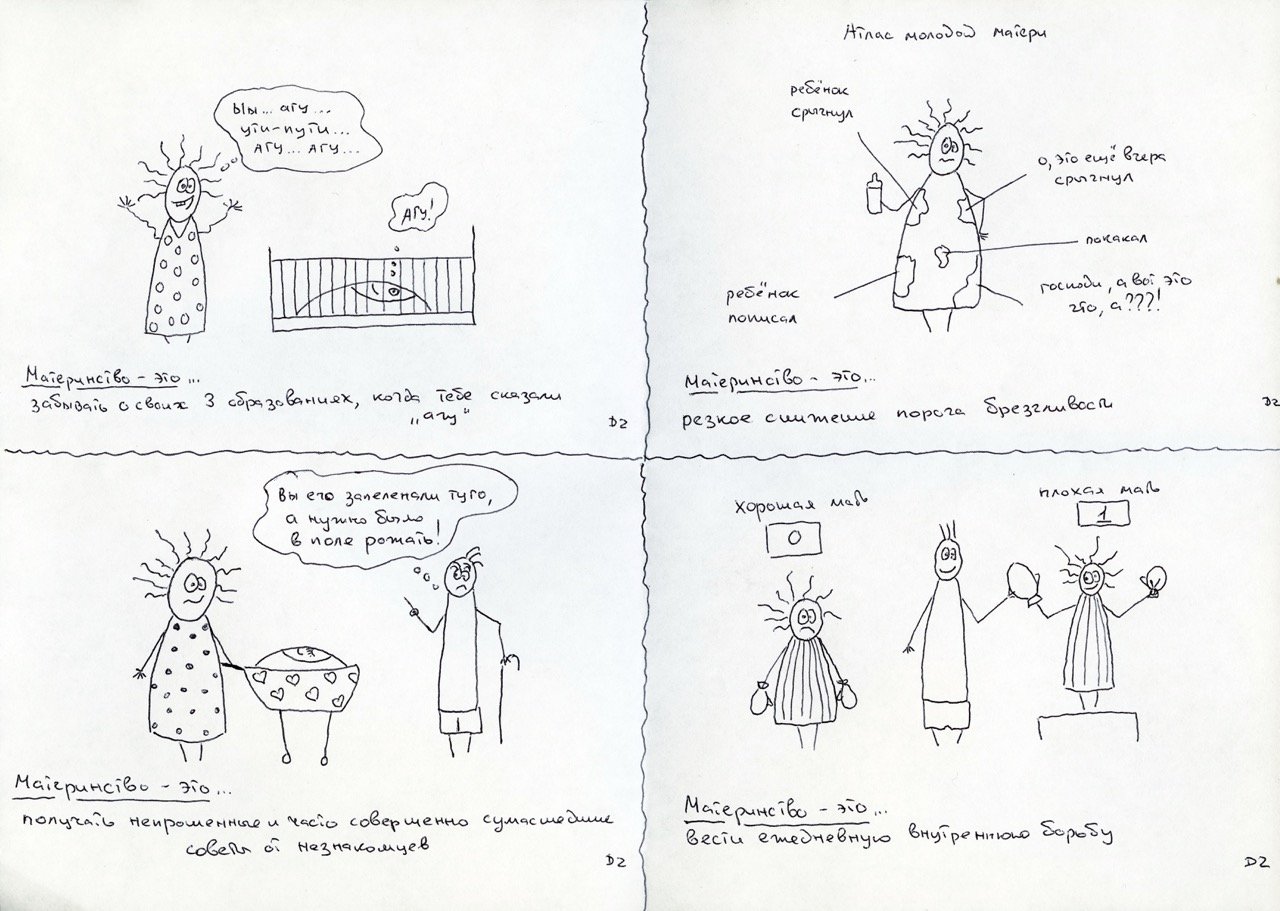 Ыы... агу...
ути-пути...
агу... агу...
Агу!
Материнство - это...
забывать о своих 3 образованиях, когда тебе сказали
„агу“
D2
Атлас молодой матери
ребёнок
срыгнул
о, это ещё вчера
срыгнул
покакал
ребёнок
пописал
господи, а вот это
что, а???!
Материнство - это...
резкое снижение порога брезгливости
D2
Вы его запеленали туго,
а нужно было
в поле рожать!
Материнство - это...
получать непрошенные и часто совершенно сумасшедшие
советы от незнакомцев
D2
хорошая мать
0
плохая мать
1
Материнство - это...
вести ежедневную внутреннюю борьбу
D2